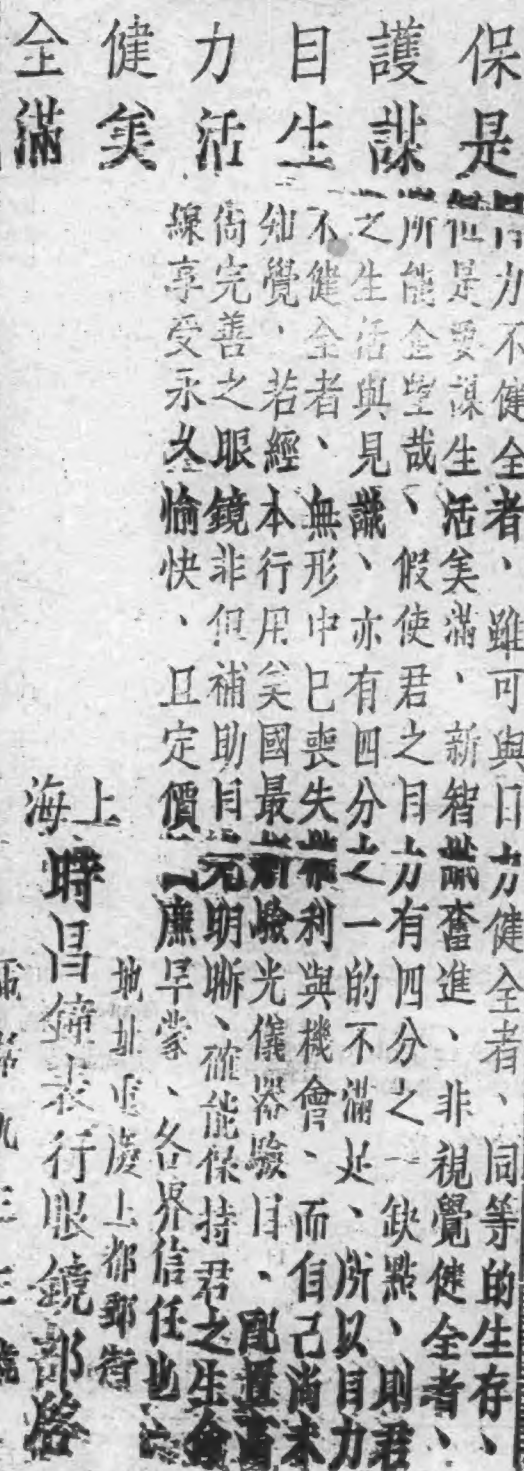 保護目力健全
是謀生活美滿
目力不健全者、雖可與目力健全者、同等的生存、
但是要謀生活美滿、新智識奮進、非視覺健全者、
所能企望哉、假使君之目力有四分之一缺點、則君
之生活與見識、亦有四分之一的不滿足、所以目力
不健全者、無形中已喪失權利與機會、而自己尚未
知覺、若經本行用美國最新驗光儀器驗目、配置高
尚完善之眼鏡非但補助目光明晰、確能保持君之生命
線享受永久愉快、且定價廉早蒙、各界信任也
上海時昌鐘表行眼鏡部啓
地址重慶上都郵街